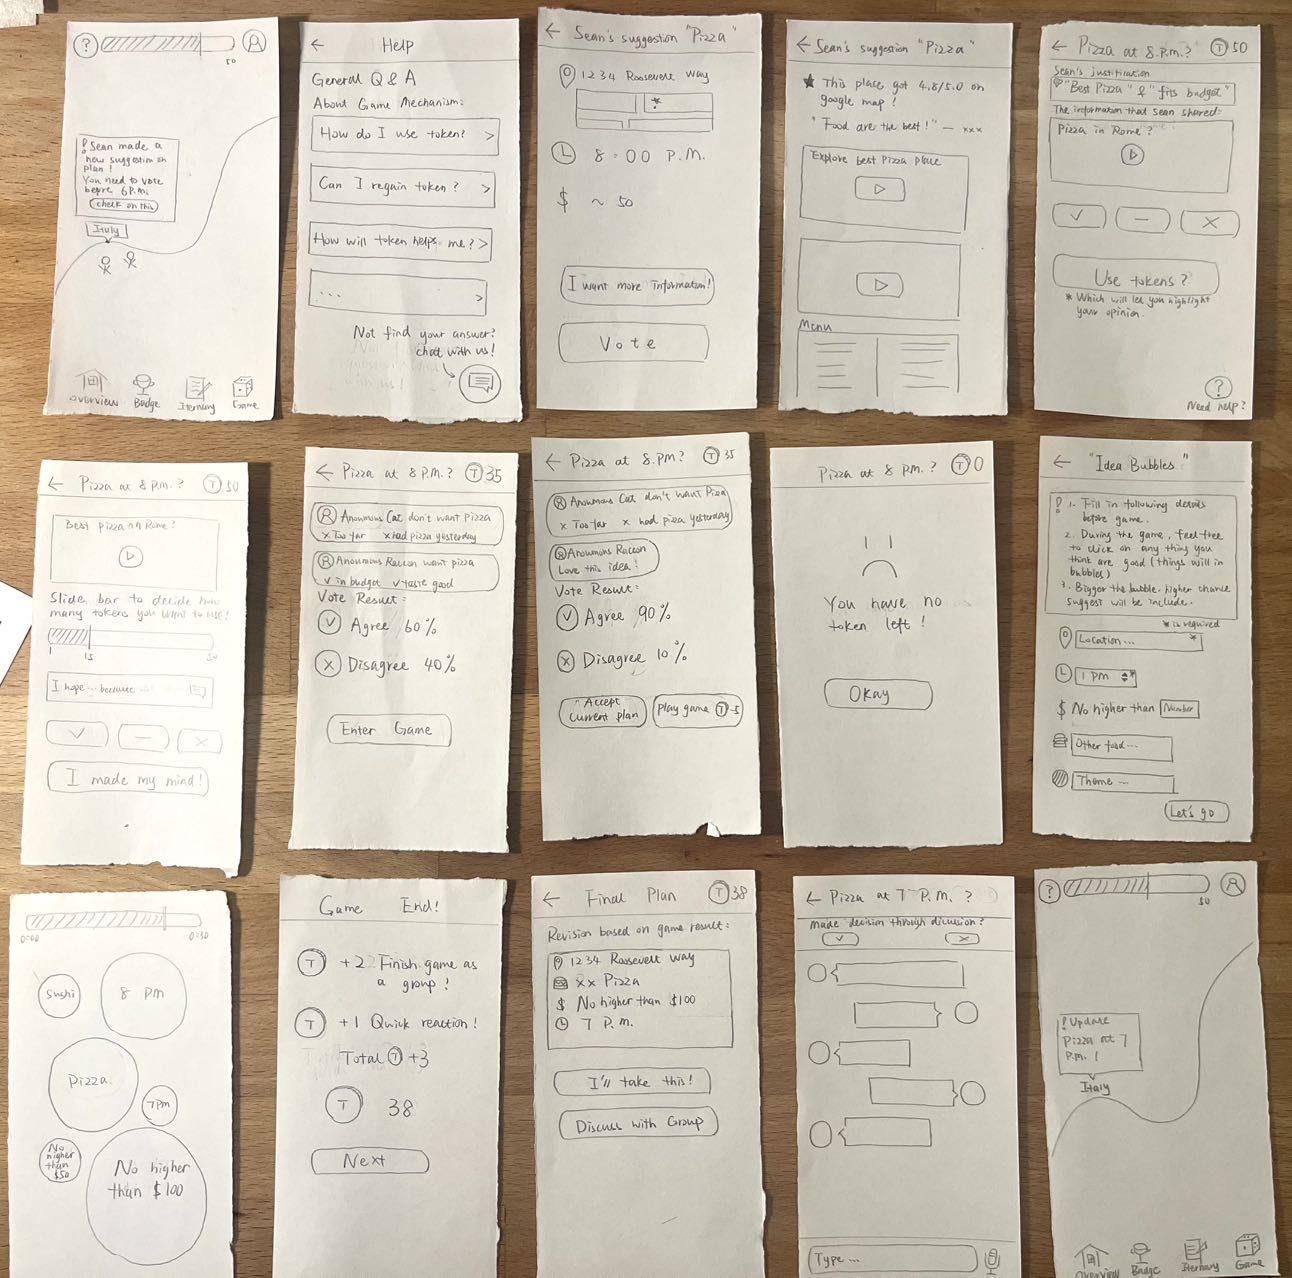 ?
50
! Sean made a
new suggestion on
plan!
You need to vote
before 6 P.M.
check on this
Italy
Overview Badge Iternary Game
← Help
General Q & A
About Game Mechanism:
How do I use token? >
Can I regain token? >
How will token helps me? >
... >
Not find your answer?
chat with us!
← Sean's suggestion "Pizza"
1234 Roosevelt Way
8:00 P.M.
$ ~ 50
I want more information!
Vote
← Sean's suggestion "Pizza"
★ This place got 4.8/5.0 on
google map!
"Food are the best!" — xxx
Explore best Pizza place
Menu
← Pizza at 8 P.M.? T 50
Sean's justification
"Best Pizza" & "fits budget"
The information that Sean shared:
Pizza in Rome?
Use tokens?
* Which will let you highlight
your opinion.
?
Need help?
← Pizza at 8 P.M.? T 50
Best pizza in Rome?
Slide bar to decide how
many tokens you want to use!
1 15 50
I hope ... because
I made my mind!
← Pizza at 8 P.M.? T 35
Anoumous Cat don't want pizza
x Too far x had pizza yesterday
Anoumous Raccon want pizza
✓ in budget ✓ taste good
Vote Result:
Agree 60%
Disagree 40%
Enter Game
← Pizza at 8 P.M.? T 35
Anoumous Cat don't want Pizza
x Too far x had pizza yesterday
Anoumous Raccon
Love this idea!
Vote Result:
Agree 90%
Disagree 10%
Accept
current plan
play game T -5
Pizza at 8 P.M.? T 0
You have no
token left!
Okay
← "Idea Bubbles"
! 1. Fill in following details
before game.
2. During the game, feel free
to click on any thing you
think are good (things will in
bubbles)
3. Bigger the bubble, higher chance
suggest will be include.
* is required
Location... *
1 PM *
$ No higher than Number
Other food...
Theme ...
Let's go
0:00 0:30
Sushi
8 PM
Pizza
7pm
No
higher
than
$50
No higher
than $100
Game End!
T +2 Finish game as
a group!
T +1 Quick reaction!
Total T +3
T 38
Next
← Final Plan T 38
Revision based on game result:
1234 Roosevelt Way
xx Pizza
$ No higher than $100
7 P.m.
I'll take this!
Discuss with Group
← Pizza at 7 P.M. ?
Made decision through dicussion?
Type ...
?
50
! Update
Pizza at 7
P.M. !
Italy
Overview Badge Iternary Game